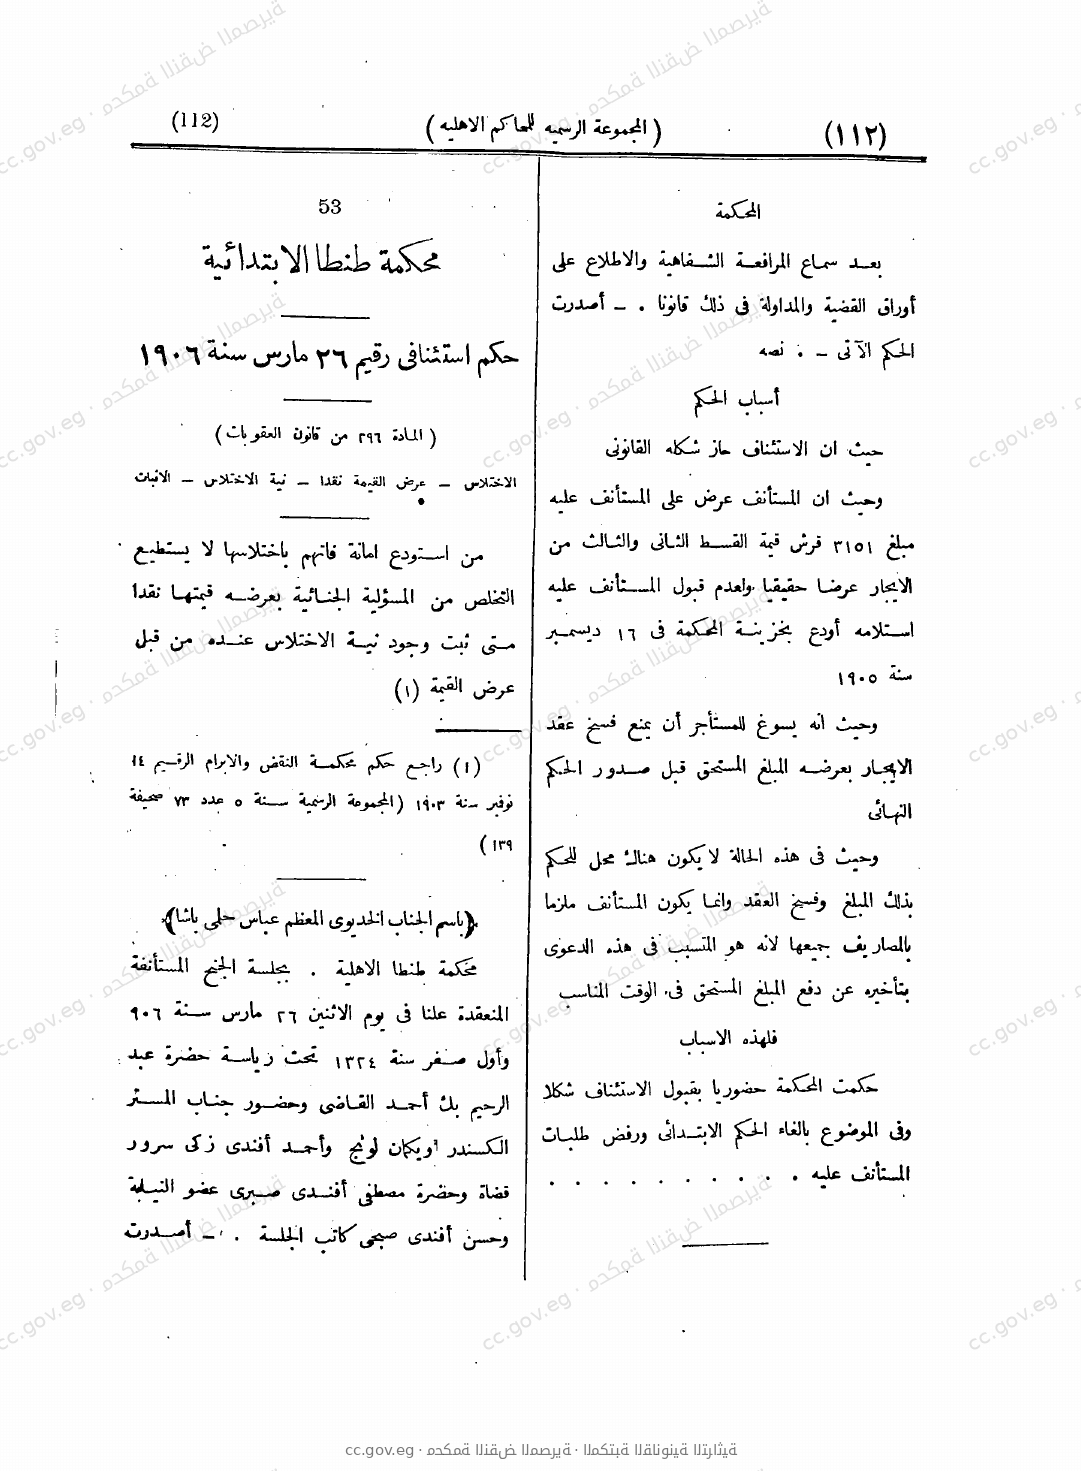 (١١٢)
( المجموعة الرسميه للمحاكم الاهليه )
(112)
المحكمة
بعد سماع المرافعة الشفاهية والاطلاع على
أوراق القضية والمداولة فى ذلك قانونا . ــ أصدرت
الحكم الآتى ــ . نصه
أسباب الحكم
حيث ان الاستئناف حاز شكله القانونى
وحيث ان المستأنف عرض على المستأنف عليه
مبلغ ٣١٥١ قرش قيمة القسط الثانى والثالث من
الايجار عرضا حقيقيا ولعدم قبول المستأنف عليه
استلامه أودع بخزينة المحكمة فى ١٦ ديسمبر
سنة ١٩٠٥
وحيث انه يسوغ للمستأجر أن يمنع فسخ عقد
الايجار بعرضه المبلغ المستحق قبل صدور الحكم
النهائى
وحيث فى هذه الحالة لا يكون هناك محل للحكم
بذلك المبلغ وفسخ العقد وانما يكون المستأنف ملزما
بالمصاريف جميعها لانه هو المتسبب فى هذه الدعوى
بتأخيره عن دفع المبلغ المستحق فى الوقت المناسب
فلهذه الاسباب
حكمت المحكمة حضوريا بقبول الاستئناف شكلا
وفى الموضوع بالغاء الحكم الابتدائى ورفض طلبات
المستأنف عليه . . . . . . . . . .
53
محكمة طنطا الابتدائية
حكم استئنافى رقيم ٢٦ مارس سنة ١٩٠٦
( المادة ٢٩٦ من قانون العقوبات )
الاختلاس ــ عرض القيمة نقدا ــ نية الاختلاس ــ الاثبات
من استودع امانة فاتهم باختلاسها لا يستطيع
التخلص من المسؤلية الجنائية بعرضه قيمتها نقدا
متى ثبت وجود نية الاختلاس عنده من قبل
عرض القيمة (١)
(١) راجع حكم محكمة النقض والابرام الرقيم ١٤
نوفبر سنة ١٩٠٣ (المجموعة الرسمية سنة ٥ عدد ٧٣ صحيفة
١٣٩ )
﴿باسم الجناب الخديوى المعظم عباس حلمى باشا﴾
محكمة طنطا الاهلية . بجلسة الجنح المستأنفة
المنعقدة علنا فى يوم الاثنين ٢٦ مارس سنة ٩٠٦
وأول صفر سنة ١٣٢٤ تحت رياسة حضرة عبد
الرحيم بك أحمد القاضى وحضور جناب المستر
الكسندر اويكمان لونج وأحمد أفندى زكى سرور
قضاة وحضرة مصطفى أفندى صبرى عضو النيابة
وحسن أفندى صبحى كاتب الجلسة . ــ أصدرت
cc.gov.eg · محكمة النقض المصرية · المكتبة القانونية التراثية